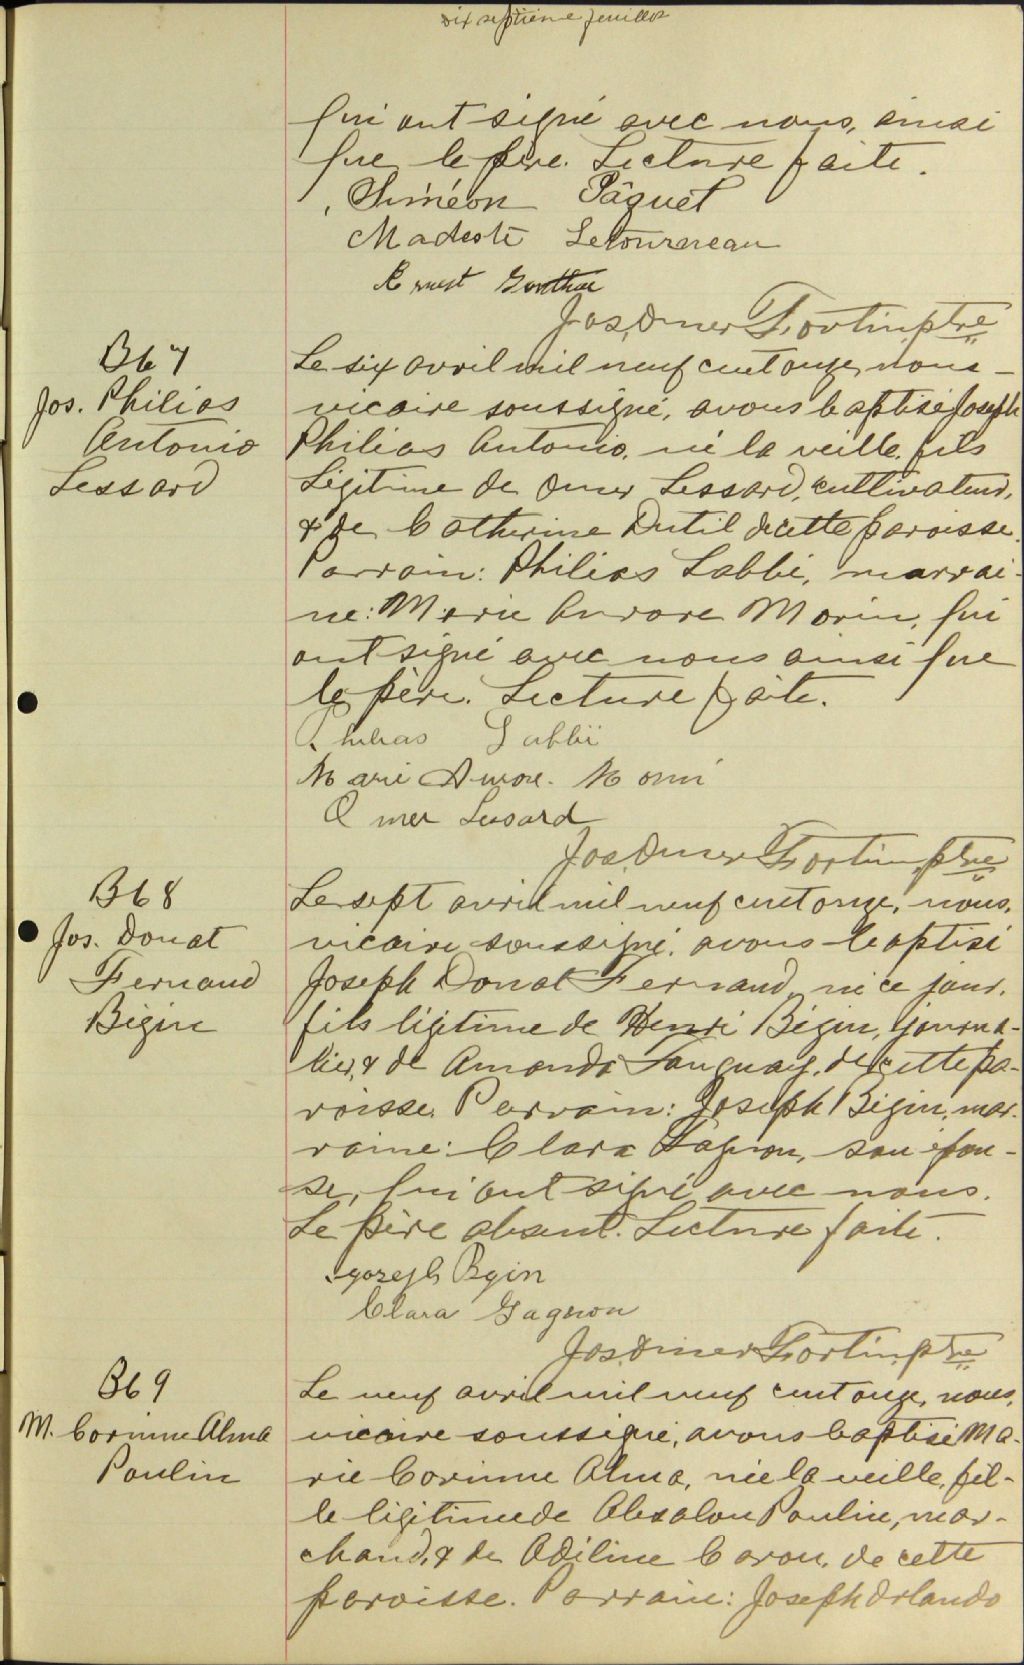 dix septième feuillet
qui ont signé avec nous, ainsi
que le père. Lecture faite.
Siméon Pâquet
Modeste Letourneau
Ernest Gonthier
Jos. Omer Fortin, ptre
B67
Jos. Philias
Antonio
Lessard
Le six avril mil neuf cent onze, nous
vicaire soussigné, avons baptisé Joseph
Philias Antonio, né la veille, fils
légitime de Omer Lessard, cultivateur,
& de Catherine Dutil de cette paroisse.
Parrain: Philias Labbé, marrai-
ne: Marie Aurore Morin, qui
ont signé avec nous ainsi que
le père. Lecture faite.
Philias Labbé
Marie Aurore Morin
Omer Lessard
Jos. Omer Fortin, ptre
B68
Jos. Donat
Fernand
Bégin
Le sept avril mil neuf cent onze, nous,
vicaire soussigné, avons baptisé
Joseph Donat Fernand, né ce jour,
fils légitime de Henri Bégin, journa-
lier, & de Amanda Tanguay, de cette pa-
roisse. Parrain: Joseph Bégin, mar-
raine: Clara Gagnon, son épou-
se, qui ont signé avec nous.
Le père absent. Lecture faite.
Joseph Bgin
Clara Gagnon
Jos. Omer Fortin, ptre
B69
M. Corinne Alma
Poulin
Le neuf avril mil neuf cent onze, nous,
vicaire soussigné, avons baptisé Ma-
rie Corinne Alma, née la veille, fil-
le légitime de Absalon Poulin, mar-
chand, & de Adéline Caron, de cette
paroisse. Parrain: Joseph Orlando